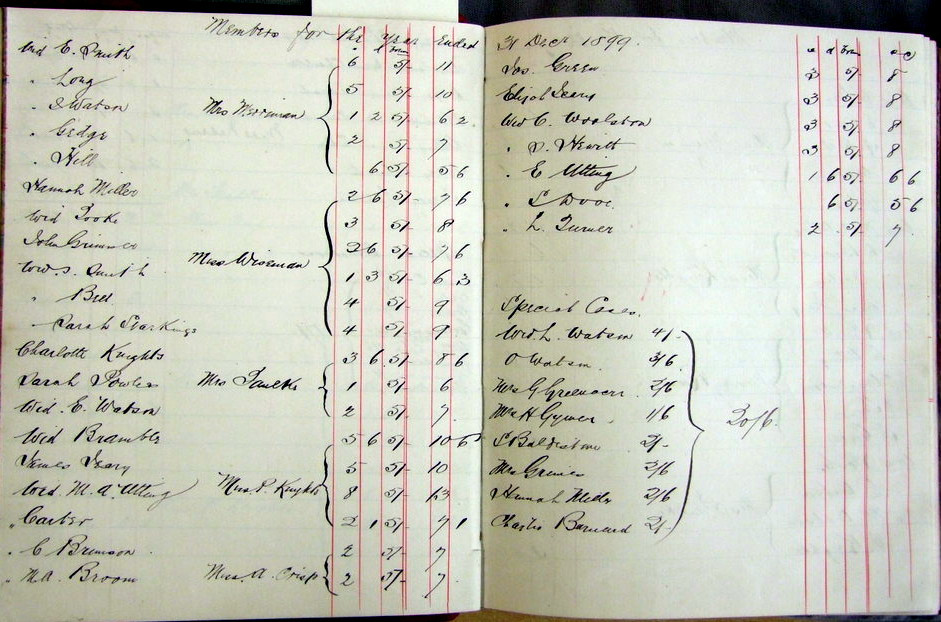 Members for the year Ended
s d From
Wid E. Smith 6 5/- 11
" Long 5 5/- 10
" S Watson Mrs Merriman 1 2 5/- 6 2
" Gedge 2 5/- 7
" Hill 6 5/- 5 6
Hannah Miller 2 6 5/- 7 6
Wid Tooke 3 5/- 8
John 2 6 5/- 7 6
Wid S. Smith Miss Wiseman 1 3 5/- 6 3
" 4 5/- 9
Sarah Starkings 4 5/- 9
Charlotte Knights 3 6 5/- 8 6
Sarah Mrs 1 5/- 6
Wid. E. Watson 2 5/- 7
Wid Bramble 5 6 5/- 10 6
James Seary 5 5/- 10
Wid. M. A Utting Mrs P. Knights 8 5/- 13
" Carter 2 1 5/- 7 1
" C 2 5/- 7
" M.A. Broom Miss A. Crisp 2 5/- 7
31 Decr 1899
s d From s d
Jos. Green 3 5/- 8
Elizth Seary 3 5/- 8
Wid C. Woolston 3 5/- 8
" S. Hewitt 3 5/- 8
" E Utting 1 6 5/- 6 6
" S 6 5/- 5 6
" L. Turner 2 5/- 7
Special Cases.
Wid. L. Watson 4/-
O Watson 3/6
Mrs G Greenacre 2/6
Mrs H Gymer 1/6 20/6
S 2/-
Mrs 2/6
Hannah Miller 2/6
Charles Barnard 2/-